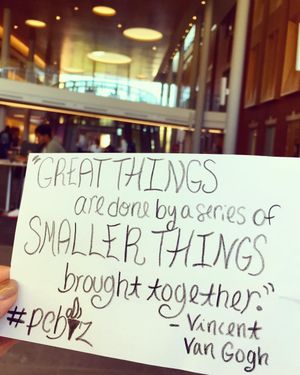 "GREAT THINGS
are done by a series of
SMALLER THINGS
brought together."
- Vincent
Van Gogh
#pcbiz